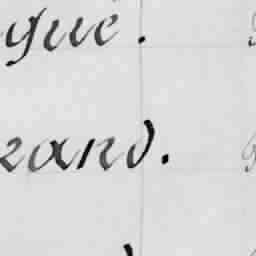 gue.
rand.